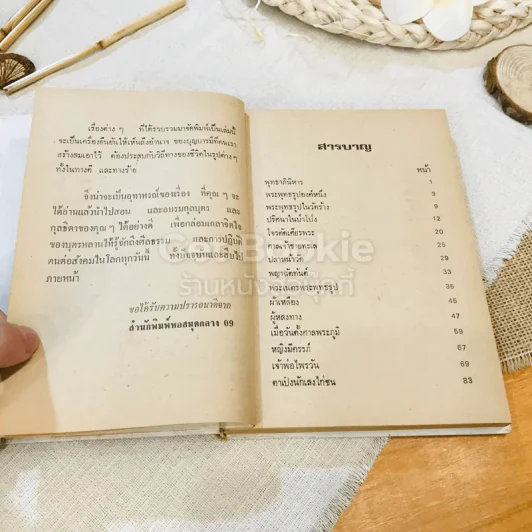 เรื่องต่าง ๆ ที่ได้รวบรวมมาจัดพิมพ์เป็นเล่มนี้
จะเป็นเครื่องยืนยันให้เห็นถึงอำนาจ ของบุญบารมีที่คนเรา
สร้างสมเอาไว้ ต้องประสบกับวิถีทางของชีวิตในรูปต่าง ๆ
ทั้งในทางดี และทางร้าย
จึงน่าจะเป็นอุทาหรณ์ของเรื่อง ที่คุณ ๆ จะ
ได้อ่านแล้วนำไปสอน และอบรมกุลบุตร และ
กุลธิดาของคุณ ๆ ได้อย่างดี เพื่อกล่อมเกลาจิตใจ
ของบุตรหลานให้รู้จักถึงศีลธรรม และการปฏิบัติ
ตนต่อสังคมในโลกทุกวันนี้ ทั้งปัจจุบันและสืบไป
ภายหน้า
ขอได้รับความปรารถนาดีจาก
สำนักพิมพ์หอสมุดกลาง 09
สารบาญ
หน้า
พุทธาภินิหาร 1
พระพุทธรูปองค์หนึ่ง 3
พระพุทธรูปในวัดร้าง 9
ปริศนาในป่าโปง 12
โจรตัดเศียรพระ 20
ศาลเจ้าชายทะเล 25
ปลาหน้าวัด 29
พญานัดทันต์ 33
พระเนตรพระพุทธรูป 35
ผ้าเหลือง 45
ผู้หลงทาง 47
เมื่อวันตั้งศาลพระภูมิ 59
หญิงมีครรภ์ 67
เจ้าพ่อไพรวัน 69
ตาเป๋งนักเลงไก่ชน 83
GenBookie
ร้านหนังสือบุ๊คกี้